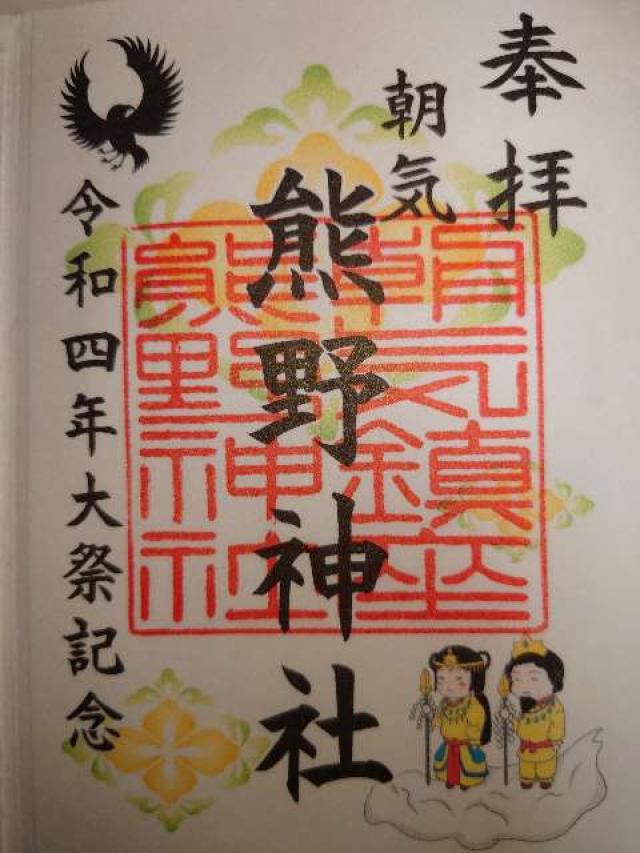 奉拝
朝気
熊野神社
令和四年大祭記念
朝气鎮座
熊野神社